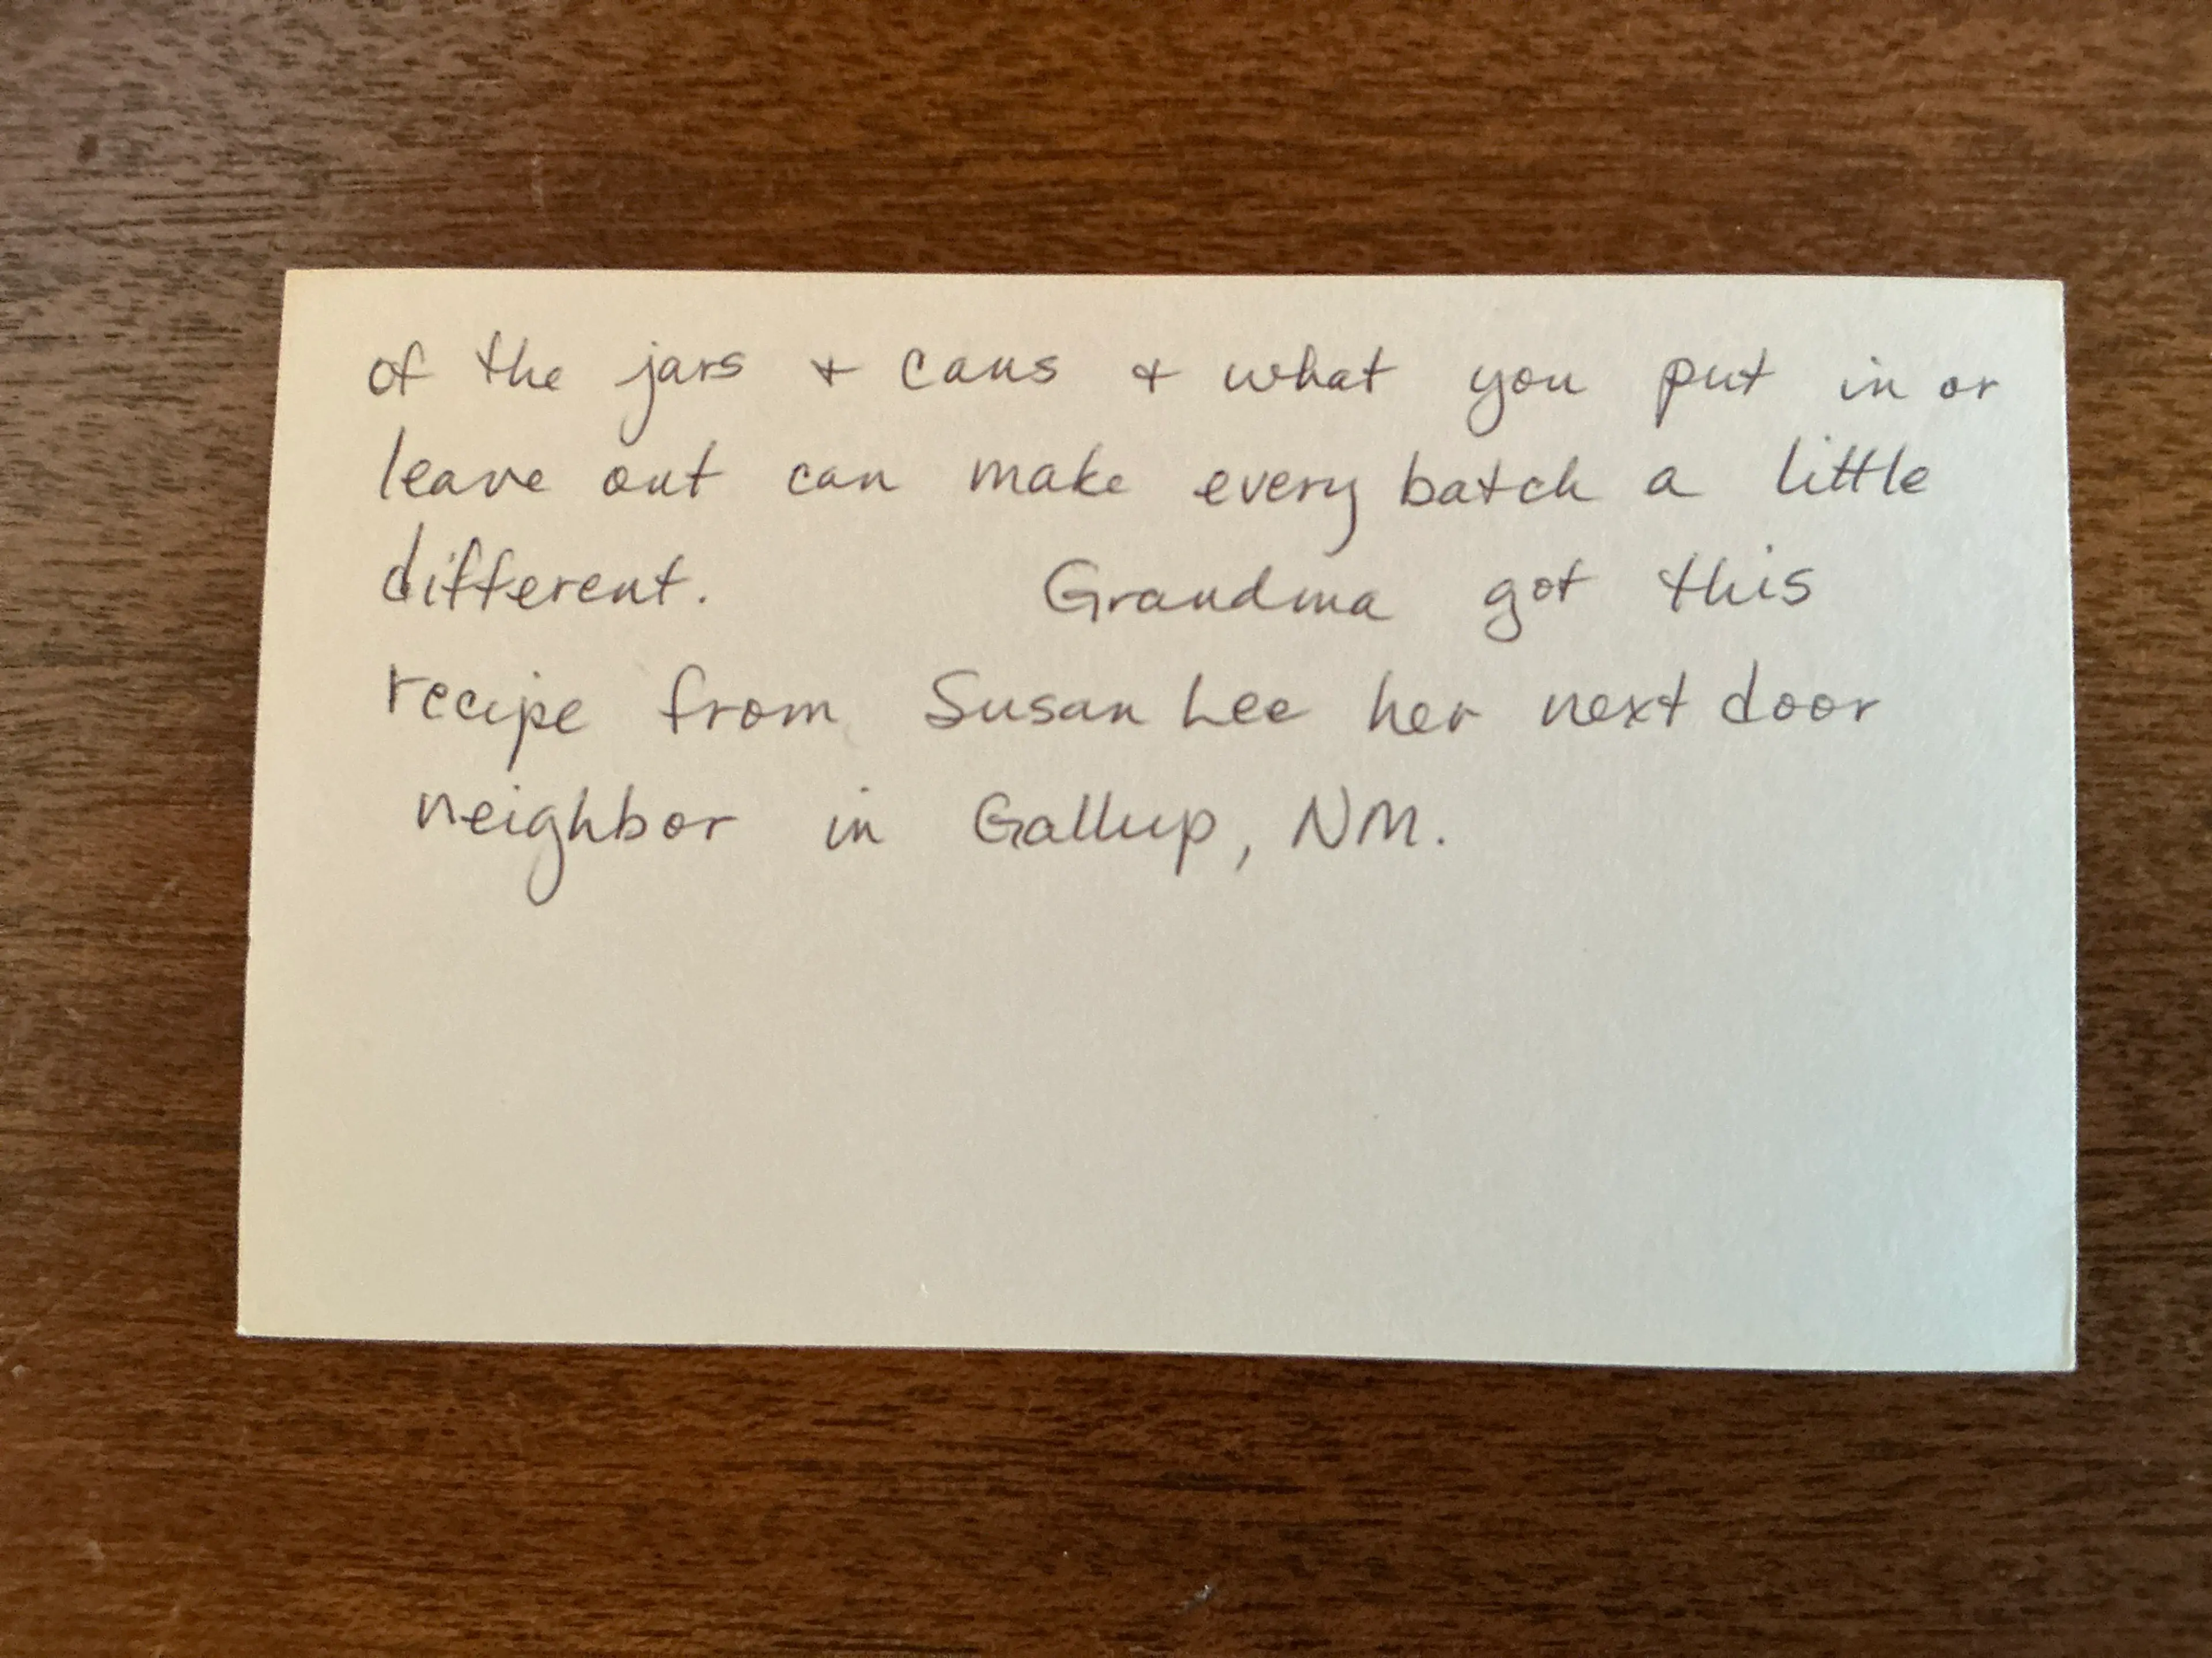 of the jars + cans + what you put in or
leave out can make every batch a little
different. Grandma got this
recipe from Susan Lee her next door
neighbor in Gallup, NM.